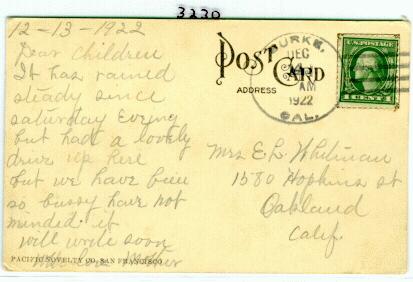 3230
12-13-1922
Dear Children
It has rained
steady since
saturday Evning
but had a lovely
drive up here
but we have bien
so bussy have not
minded it
will write soon
Mother
PACIFIC NOVELTY CO. SAN FRANCISCO
POST CARD
ADDRESS
BURKE,
DEC
AM
1922
CAL.
U.S. POSTAGE
1 CENT 1
Mrs E L Whitman
1580 Hopkins st
Oakland
Calif.